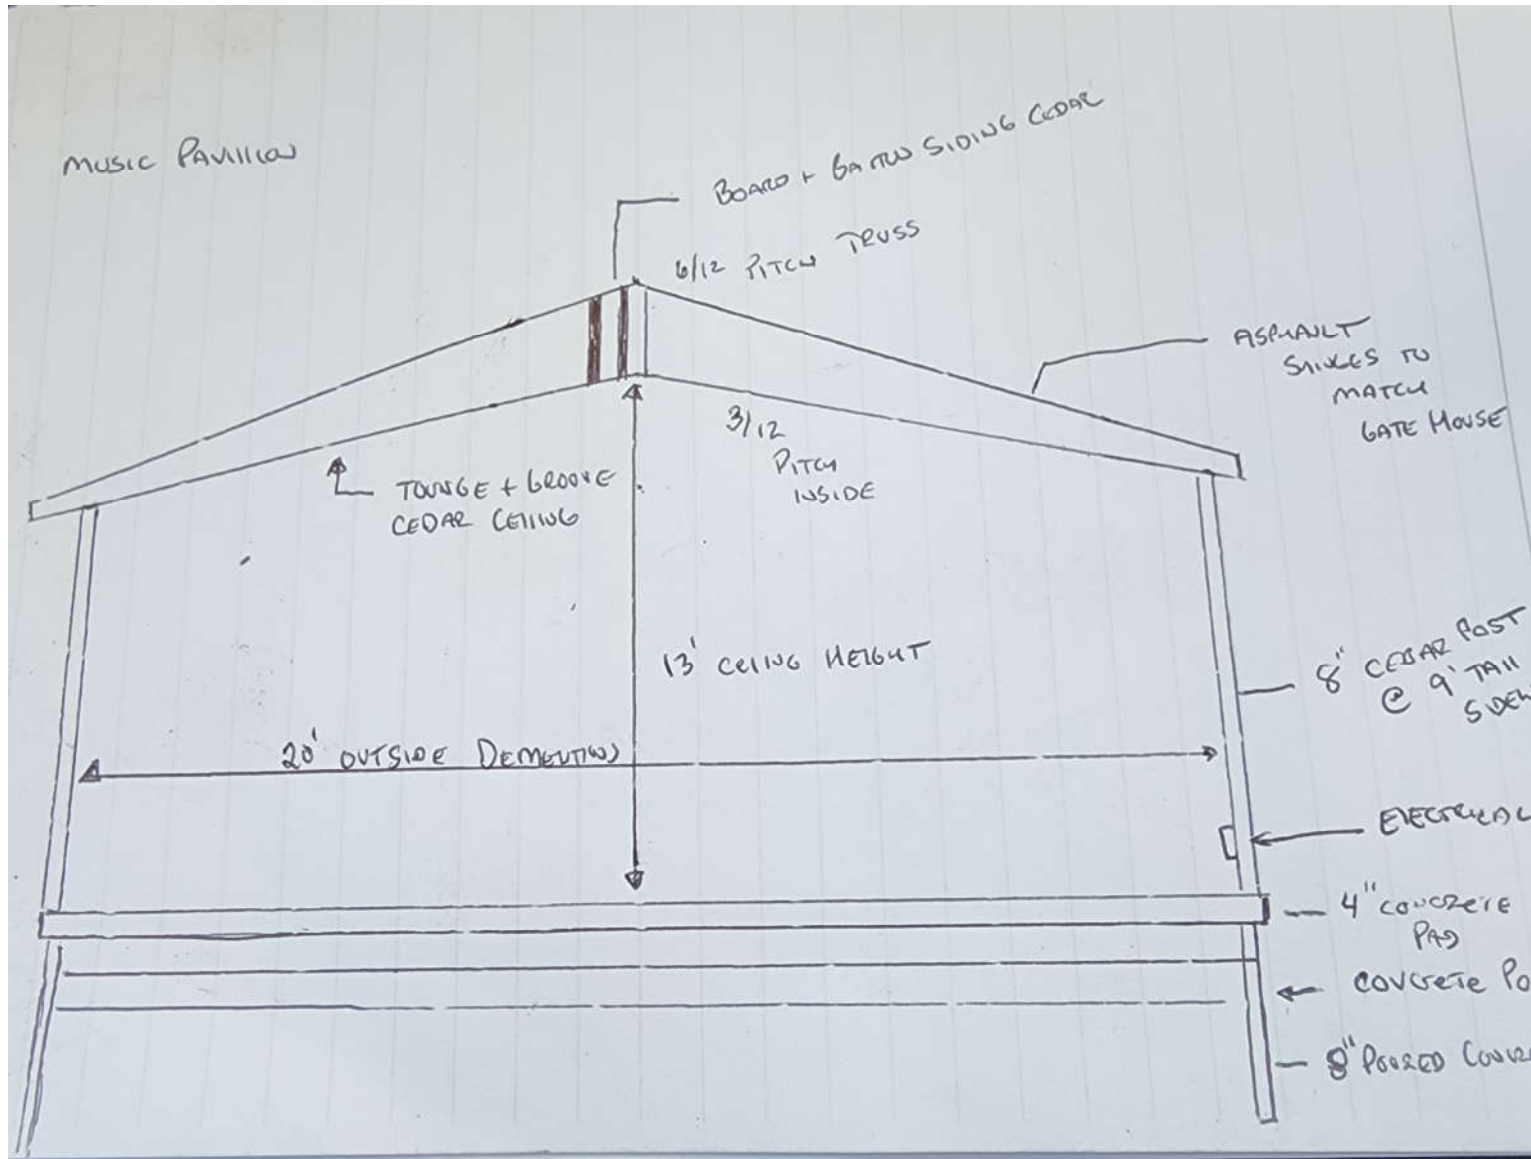 MUSIC PAVILLION
BOARD + BATTEN SIDING CEDAR
6/12 PITCH TRUSS
ASPHAULT
SHINGLES TO
MATCH
GATE HOUSE
3/12
PITCH
INSIDE
TOUNGE + GROOVE
CEDAR CEIING
13' CEIING HEIGHT
8" CEDAR POST
@ 9' TAll
20' OUTSIDE
ELECTRICAL
4" CONCRETE
PAD
CONCRETE
8" POURED